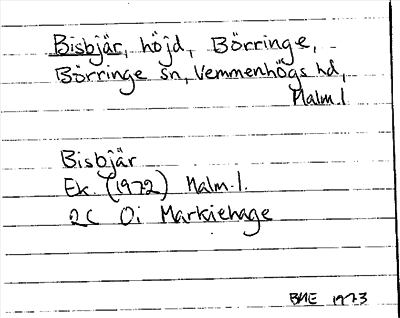 Bisbjär, höjd, Börringe,
Börringe sn, Vemmenhögs hd,
Malm.l
Bisbjär
Ek. (1972) Malm.l.
2C 0i Markiehage
BME 1973